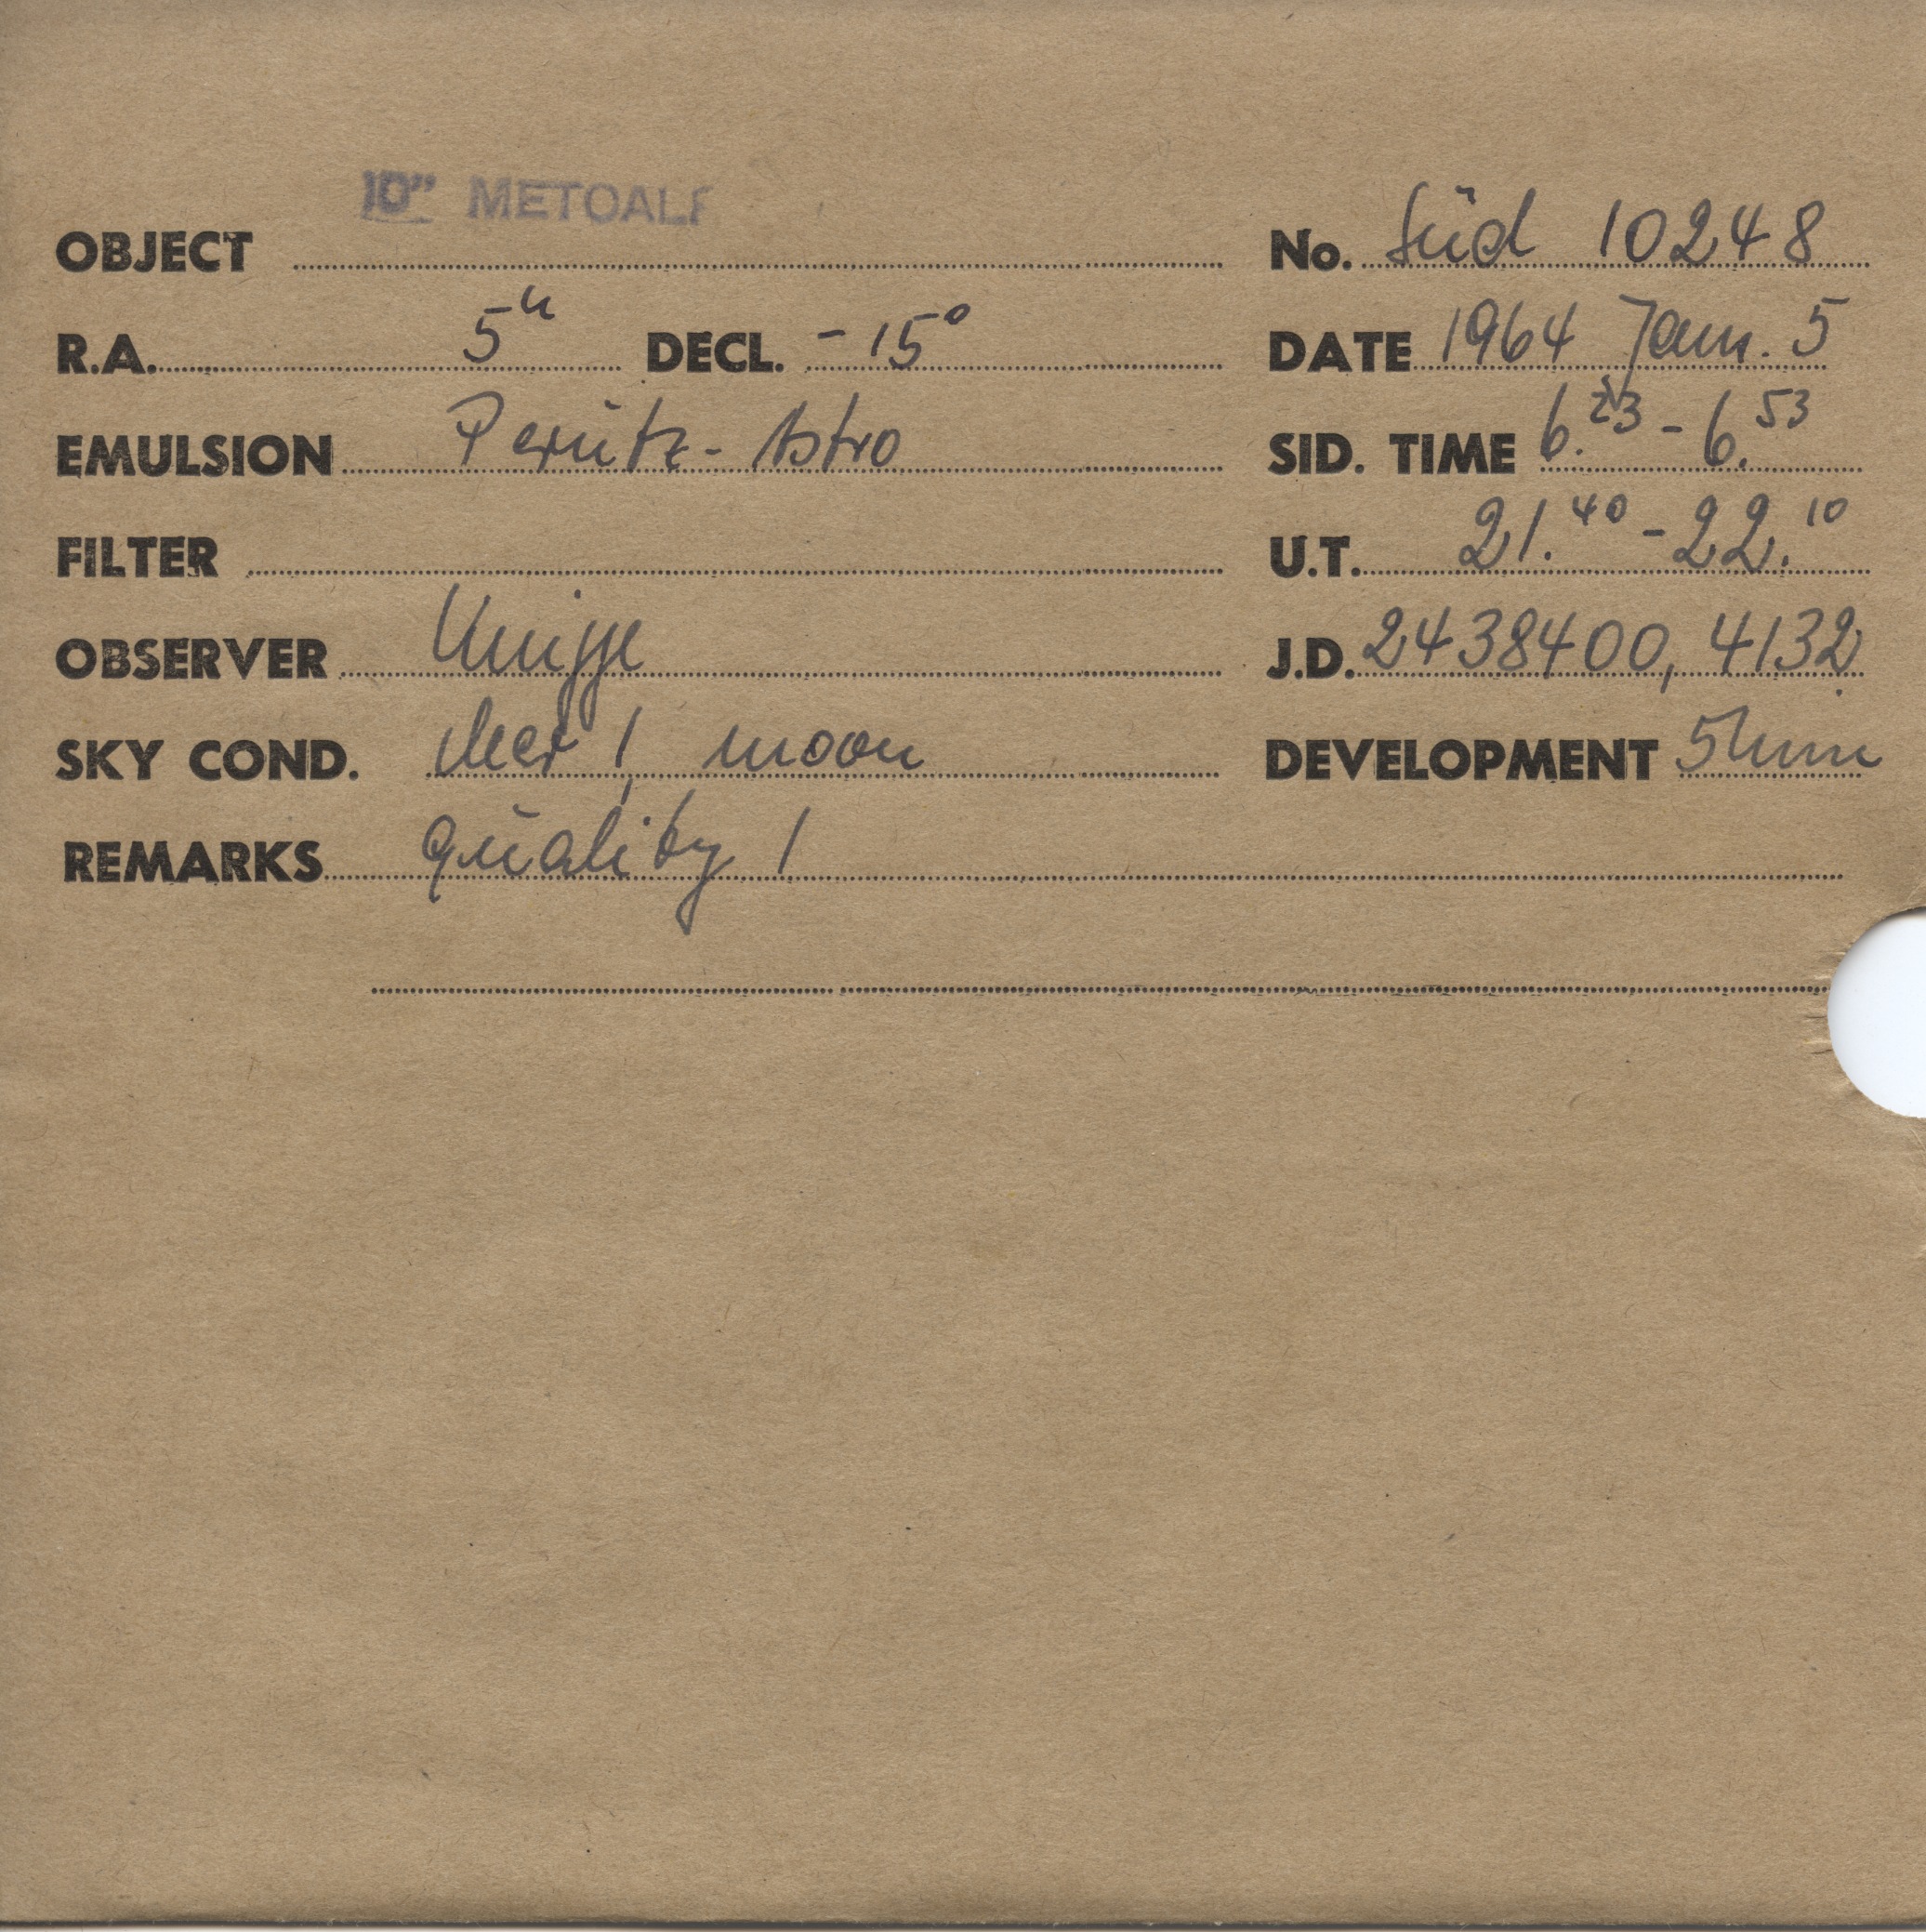 10" METCALF
OBJECT No. Süd 10248
R.A. 5h DECL. -15° DATE 1964 Jan. 5
EMULSION Perutz-Astro SID. TIME 6.23 - 6.53
FILTER U.T. 21.40 - 22.10
OBSERVER J.D. 2438400,4132
SKY COND. clear 1, moon DEVELOPMENT 5 min
REMARKS quality 1